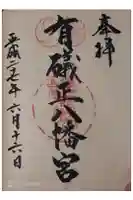 奉拝
有礒正八幡宮
平成二十七年六月十六日